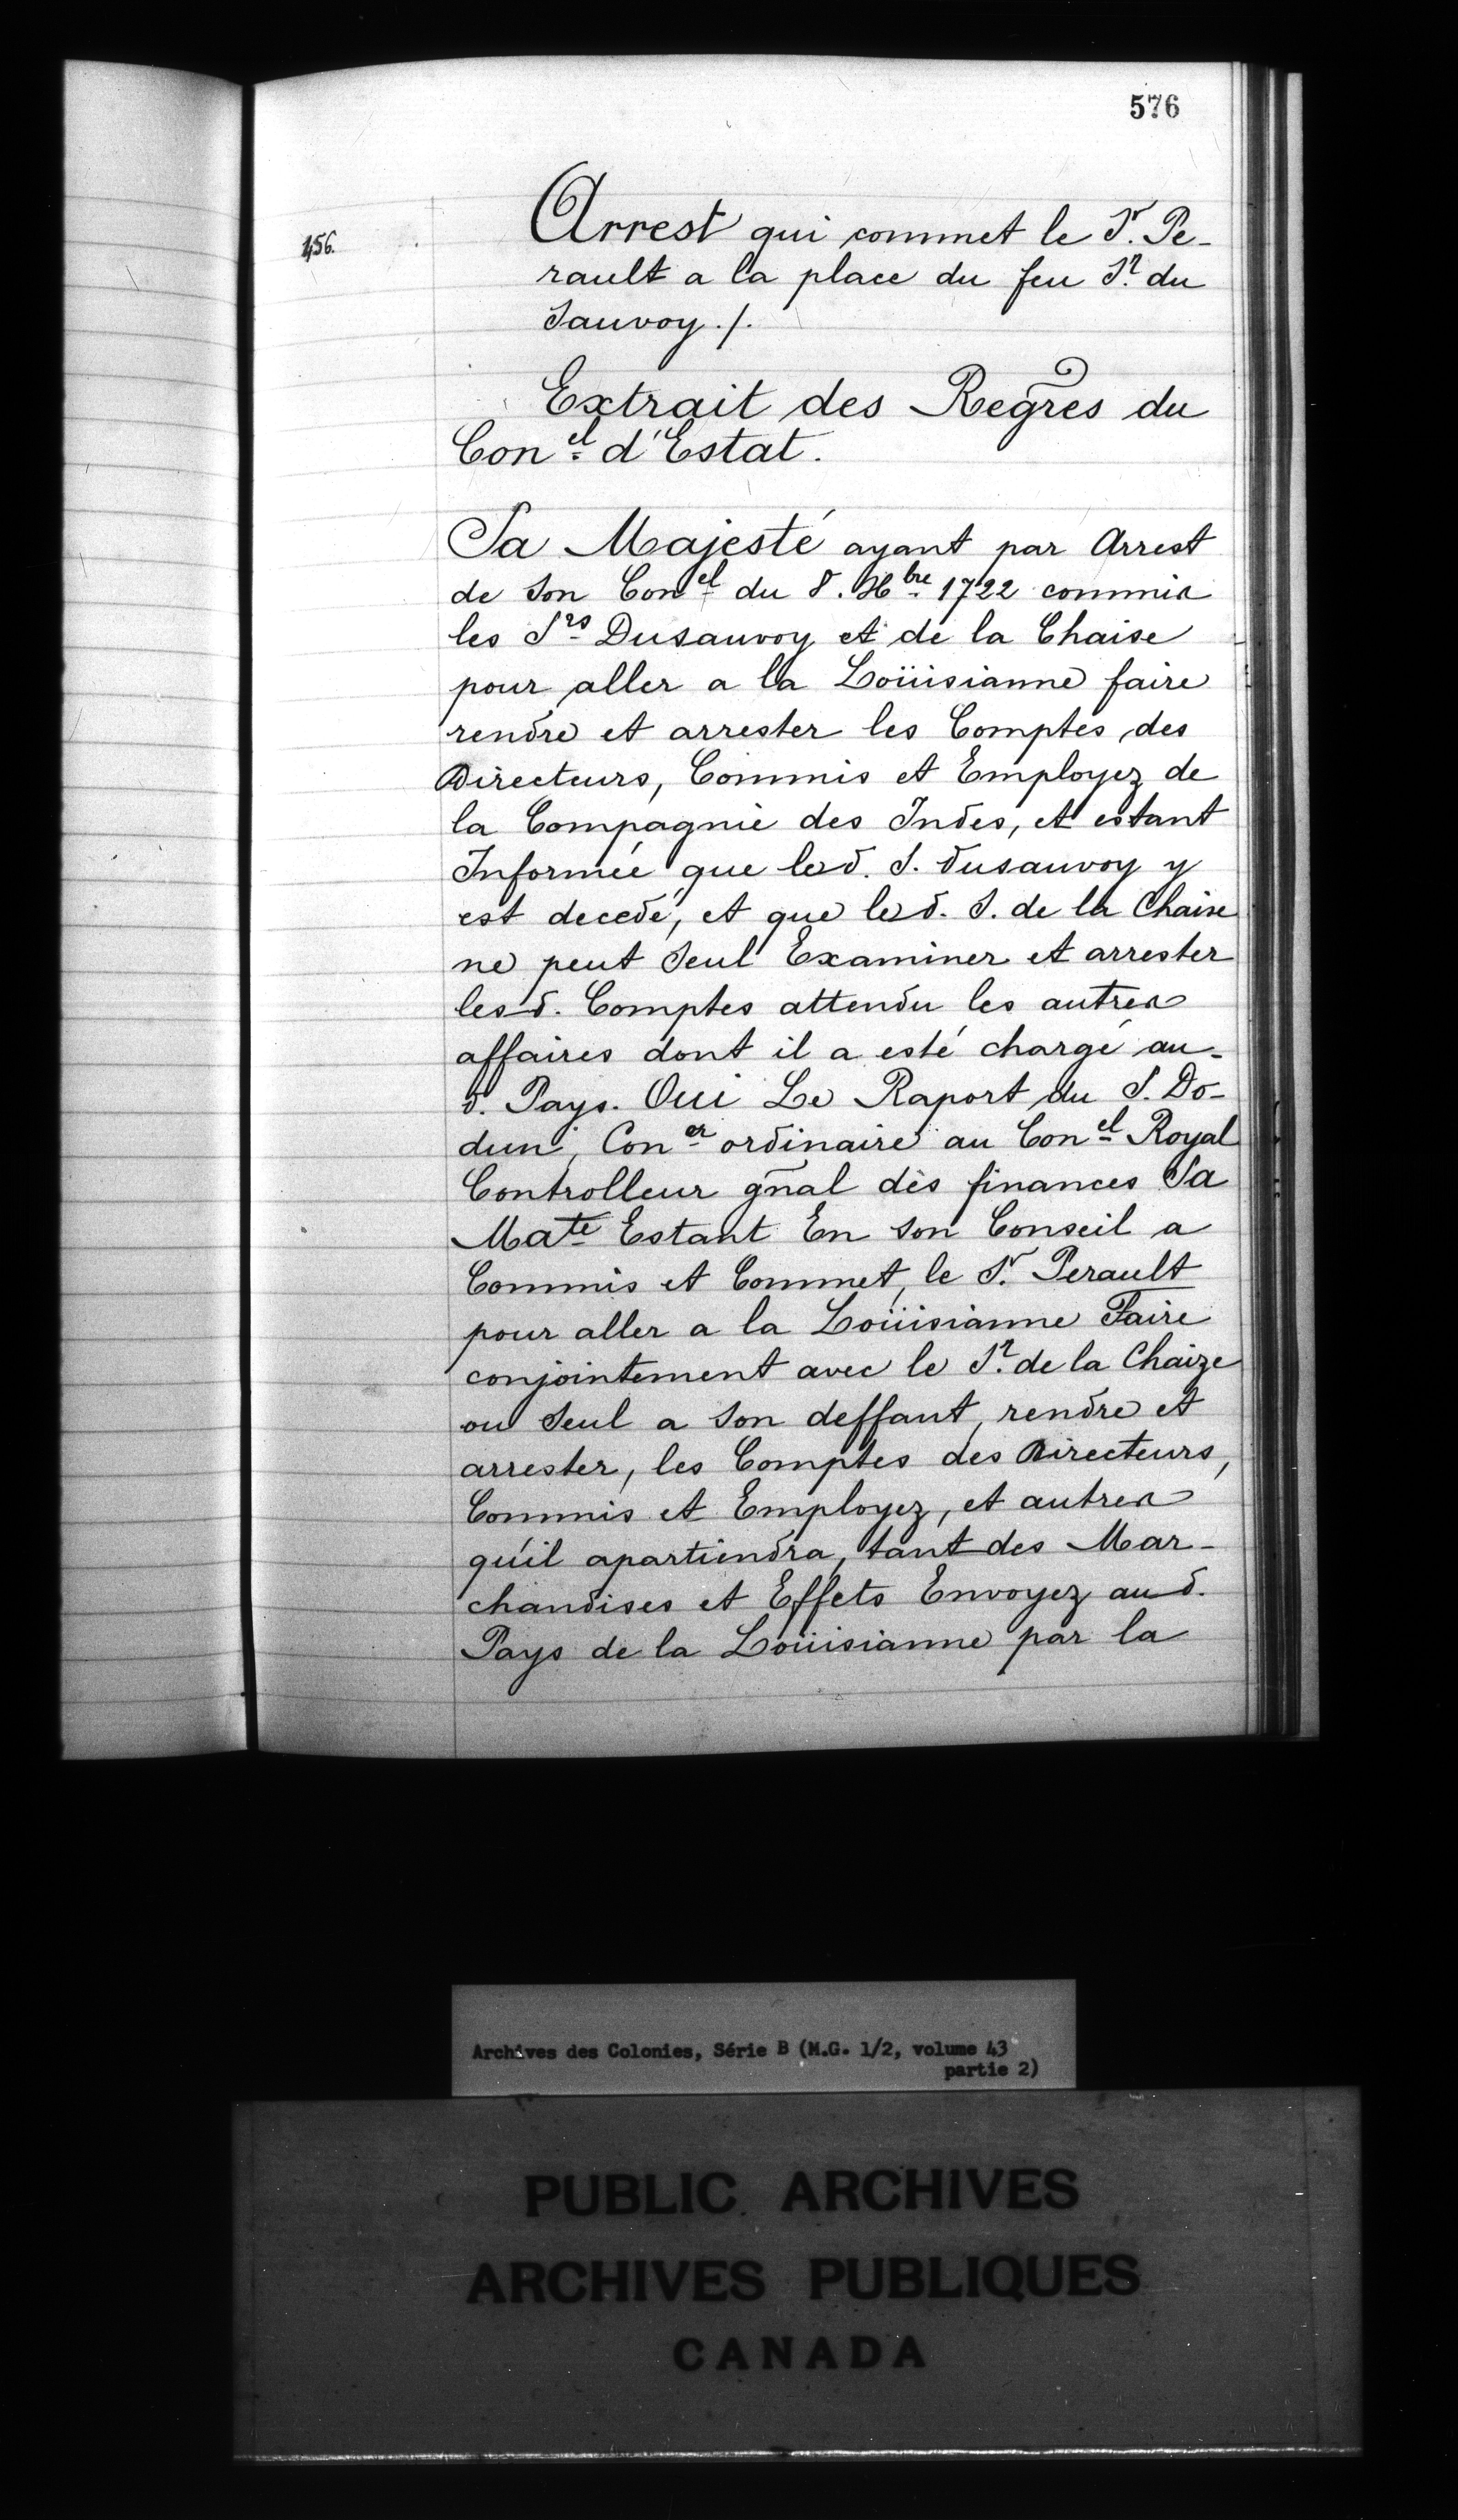 576
456.
Arrest qui commet le Sr. Pe-
rault a la place du feu Sr. du
Sauvoy ./.
Extrait des Regres du
Conel d'Estat.
Sa Majesté ayant par Arrest
de son Conel du 8. Xbre 1722 commis
les Srs Dusauvoy et de la Chaise
pour aller a la Loüisianne faire
rendre et arrester les Comptes des
Directeurs, Commis et Employez de
la Compagnie des Indes, et estant
Informée que led. S. dusauvoy y
est decedé, et que led. S. de la Chaise
ne peut seul Examiner et arrester
lesd. Comptes attendu les autres
affaires dont il a esté chargé au-
d. Pays. Oui Le Raport du S. Do-
dun, Coner ordinaire au Conel Royal
Controlleur gnal des finances Sa
Mate Estant En son Conseil a
Commis et Commet, le Sr. Perault
pour aller a la Loüisianne Faire
conjointement avec le Sr. de la Chaize
ou seul a son deffaut, rendre et
arrester, les Comptes des Directeurs,
Commis et Employez, et autres
qu'il apartiendra, tant des Mar-
chandises et Effets Envoyez aud.
Pays de la Loüisianne par la
Archives des Colonies, Série B (M.G. 1/2, volume 43
partie 2)
PUBLIC ARCHIVES
ARCHIVES PUBLIQUES
CANADA